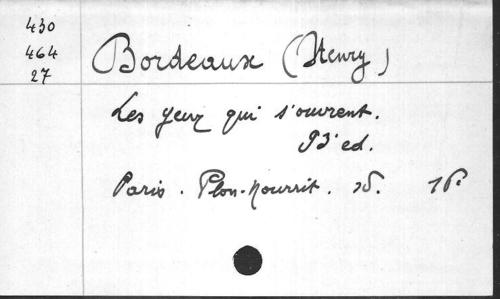 430
464
27
Bordeaux (Henry)
Les yeux qui s'ouvrent.
93e ed.
Paris. Plon-Nourrit. sd. 16°